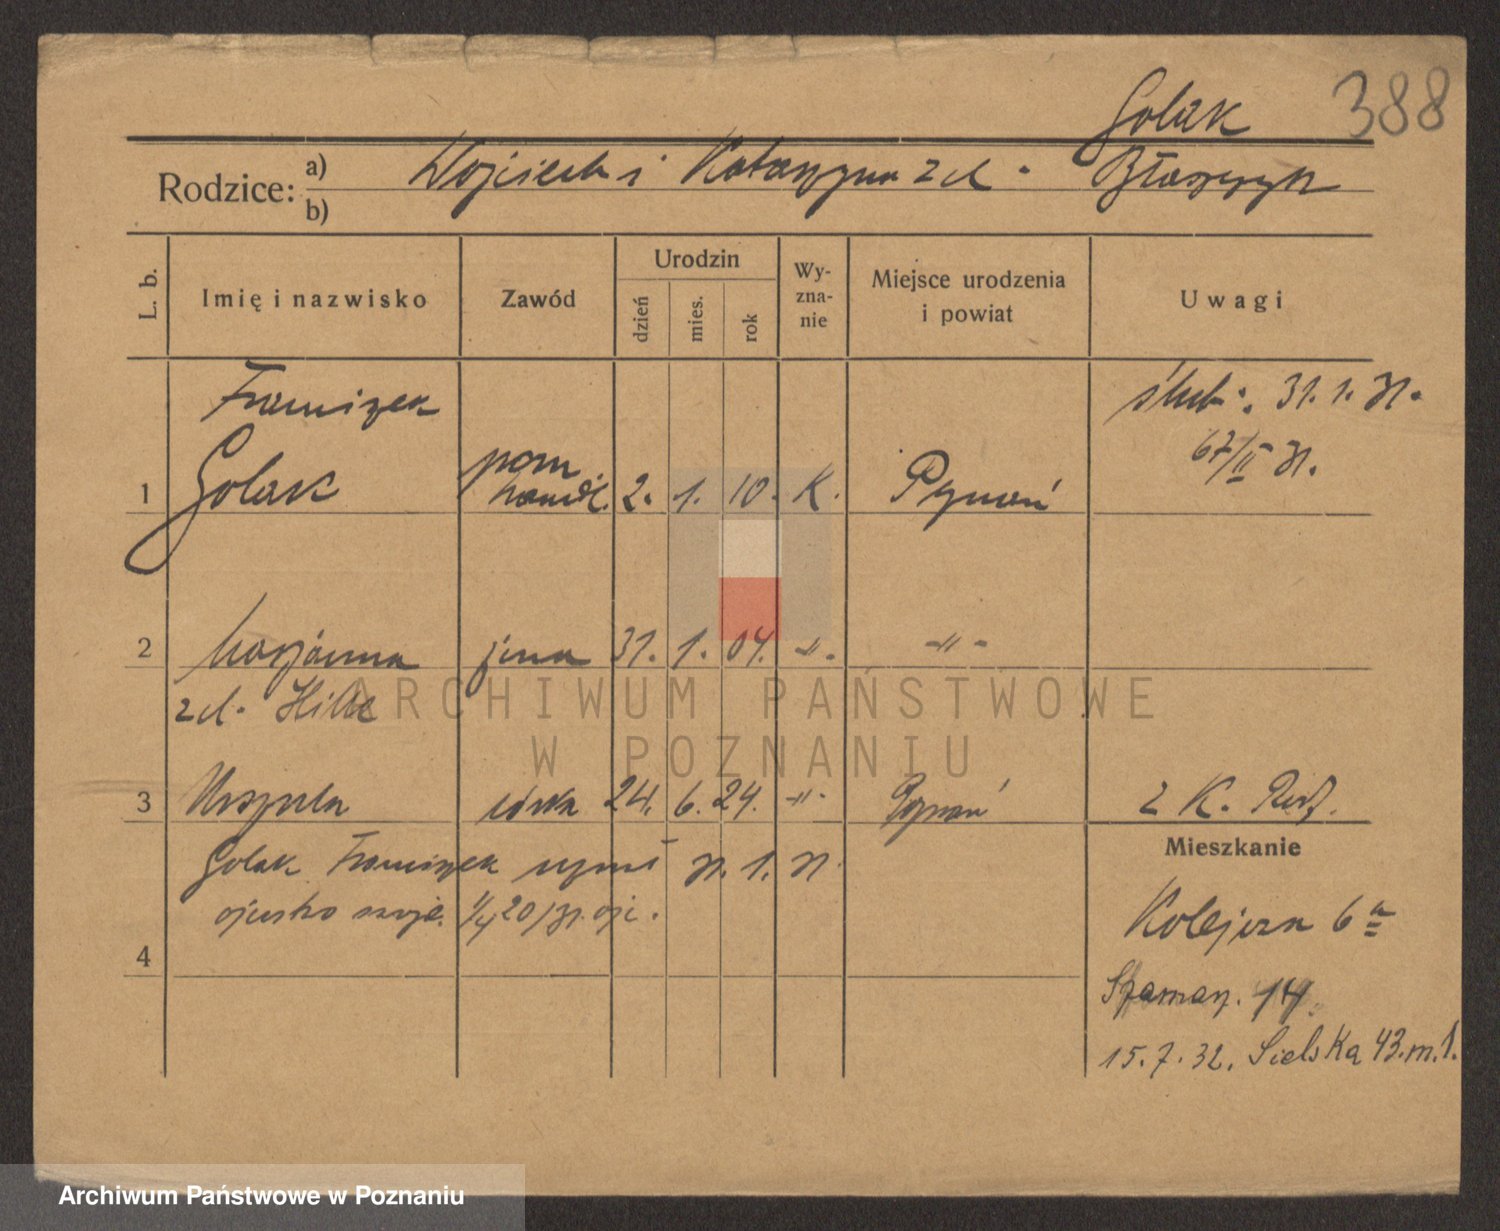 388
Golak
Rodzice: a) Wojciech i Katarzyna z d. Błaszczyk
b)
L. b. Imię i nazwisko Zawód Urodzin dzień mies. rok Wy-zna-nie Miejsce urodzenia i powiat Uwagi
Franciszek ślub: 31. 1. 31.
67/II 31.
1 Golak pom. handl. 2. 1. 10. K. Poznań
2 Marjanna żona 31. 1. 04. -"-. -"-
z d. Hille
ARCHIWUM PAŃSTWOWE
W POZNANIU
3 Urszula córka 24. 6. 24. -"-. Poznań z K. Rod.
Golak Franciszek uznał 31. 1. 31. Mieszkanie
ojcostwo 20/31. Kolejowa 6a
4
Szamarz. 14.
15. 7. 32. Sielska 43. m. 1.
Archiwum Państwowe w Poznaniu